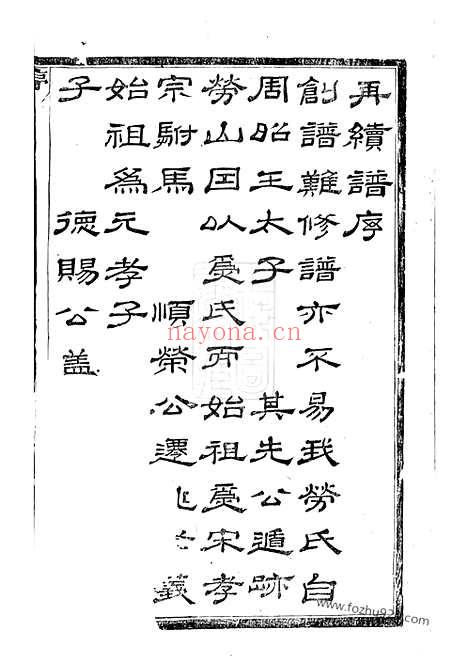 再續譜序
創譜難修譜亦不易我勞氏自
周昭王太子 其先公遁跡
勞山因以爲氏而始祖爲宋孝
宗駙馬 順榮公遷 義
始祖爲元孝子
子 德賜公盖
序
nayona.cn
www.fozhu920.com